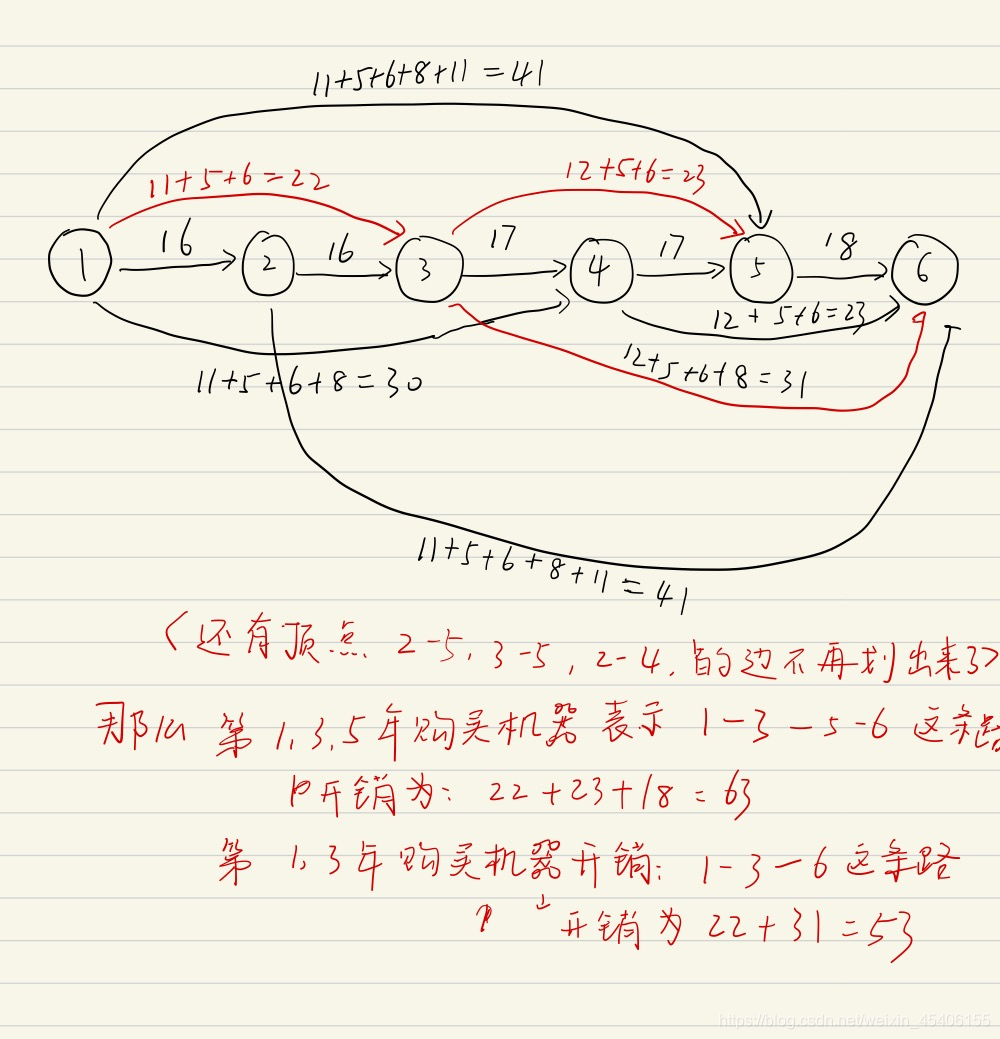 11+5+6+8+11=41
11+5+6=22
12+5+6=23
16
16
17
17
18
1
2
3
4
5
6
12+5+6=23
12+5+6+8=31
11+5+6+8=30
11+5+6+8+11=41
<还有顶点 2-5, 3-5, 2-4, 的边不再划出来了>
那么 第1,3,5年购买机器 表示 1-3-5-6 这条路
开销为: 22+23+18=63
第 1,3年购买机器开销: 1-3-6 这条路
开销为 22+31=53
https://blog.csdn.net/weixin_45406155